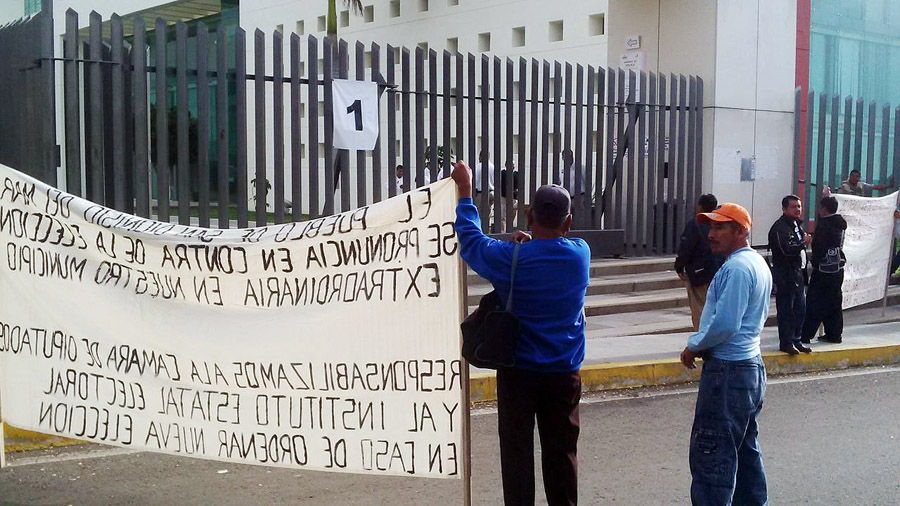 1
EL PUEBLO DE SAN DIONISIO DEL MAR
SE PRONUNCIA EN CONTRA DE LA ELECCION
EXTRAORDINARIA EN NUESTRO MUNICIPIO
RESPONSABILIZAMOS ALA CAMARA DE DIPUTADOS
Y AL INSTITUTO ESTATAL ELECTORAL
EN CASO DE ORDENAR NUEVA ELECCION